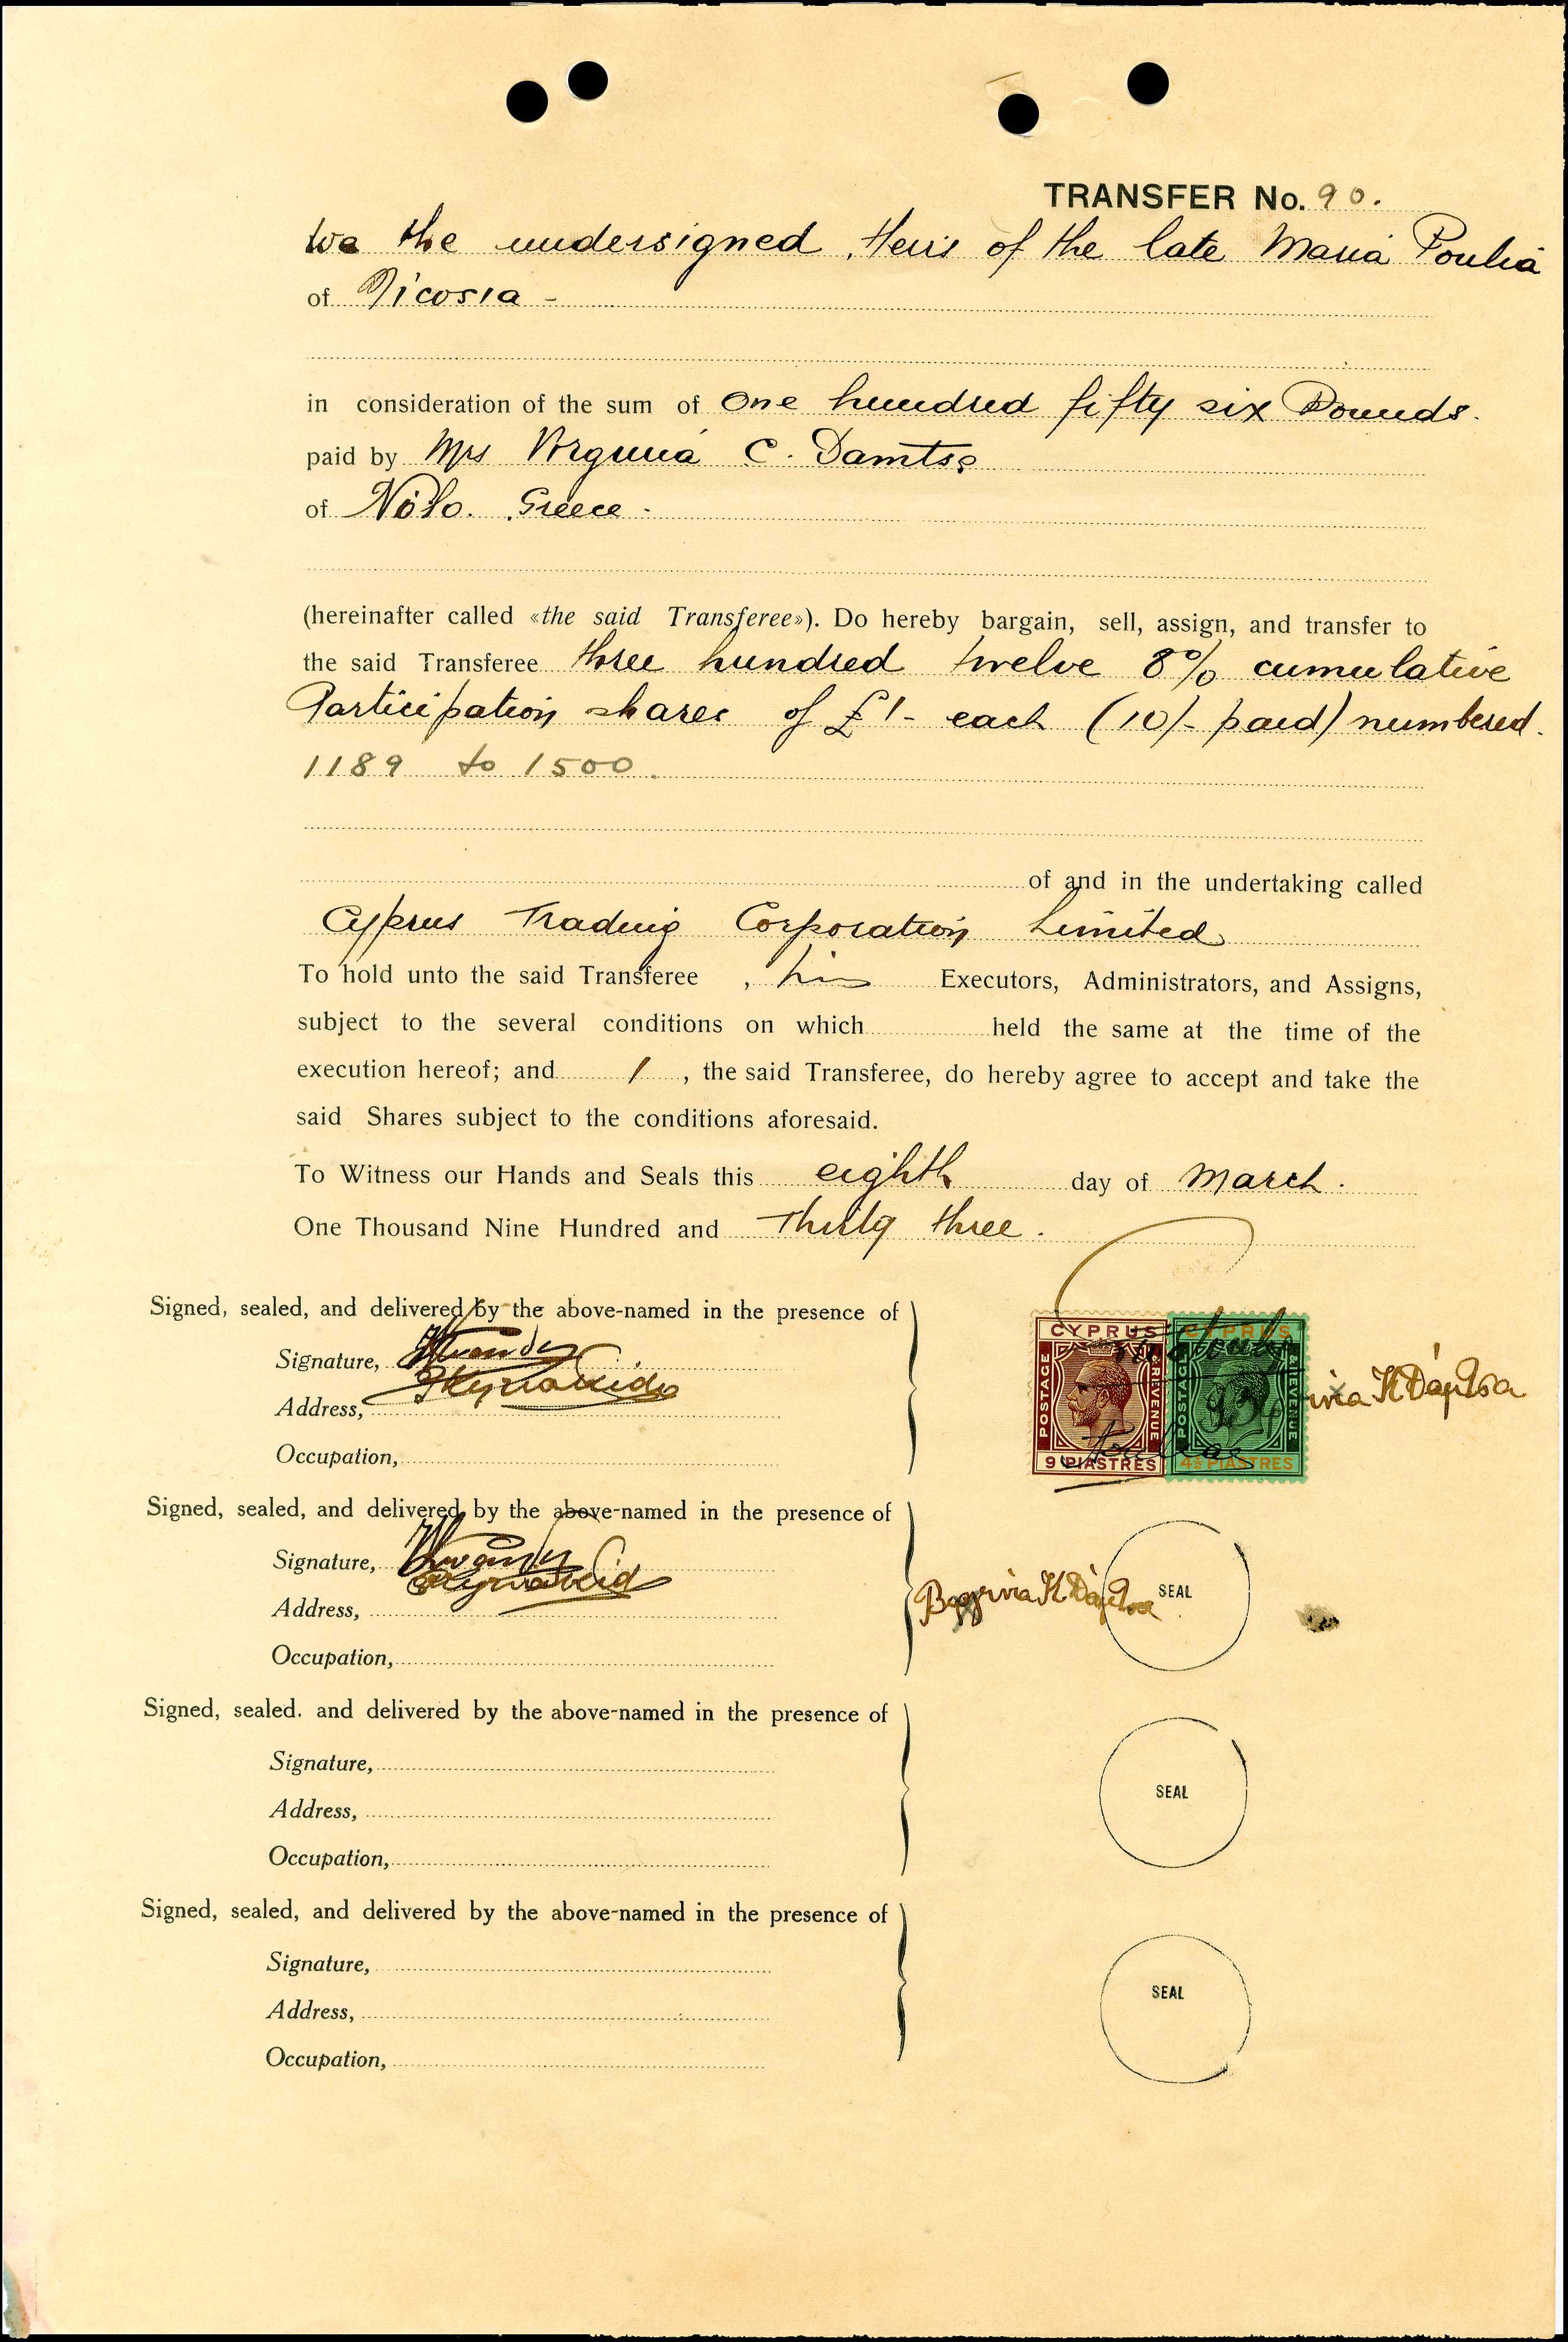 TRANSFER No. 90.
We the undersigned, Heirs of the late Maria Poulia
of Nicosia -
in consideration of the sum of One hundred fifty six Pounds.
paid by Mrs Virginia C. Damtsa
of Volo. Greece -
(hereinafter called «the said Transferee»). Do hereby bargain, sell, assign, and transfer to
the said Transferee three hundred twelve 8% cumulative
Participation shares of £1- each (10/- paid) numbered.
1189 to 1500.
of and in the undertaking called
Cyprus Trading Corporation Limited
To hold unto the said Transferee , his Executors, Administrators, and Assigns,
subject to the several conditions on which held the same at the time of the
execution hereof; and I , the said Transferee, do hereby agree to accept and take the
said Shares subject to the conditions aforesaid.
To Witness our Hands and Seals this eighth day of March.
One Thousand Nine Hundred and Thirty three.
Signed, sealed, and delivered by the above-named in the presence of
Signature,
Address,
Occupation,
CYPRUS CYPRUS
POSTAGE & REVENUE POSTAGE & REVENUE
9 PIASTRES 4½ PIASTRES
Signed, sealed, and delivered by the above-named in the presence of
Signature,
Address,
Occupation,
SEAL
Signed, sealed. and delivered by the above-named in the presence of
Signature,
Address,
Occupation,
SEAL
Signed, sealed, and delivered by the above-named in the presence of
Signature,
Address,
Occupation,
SEAL